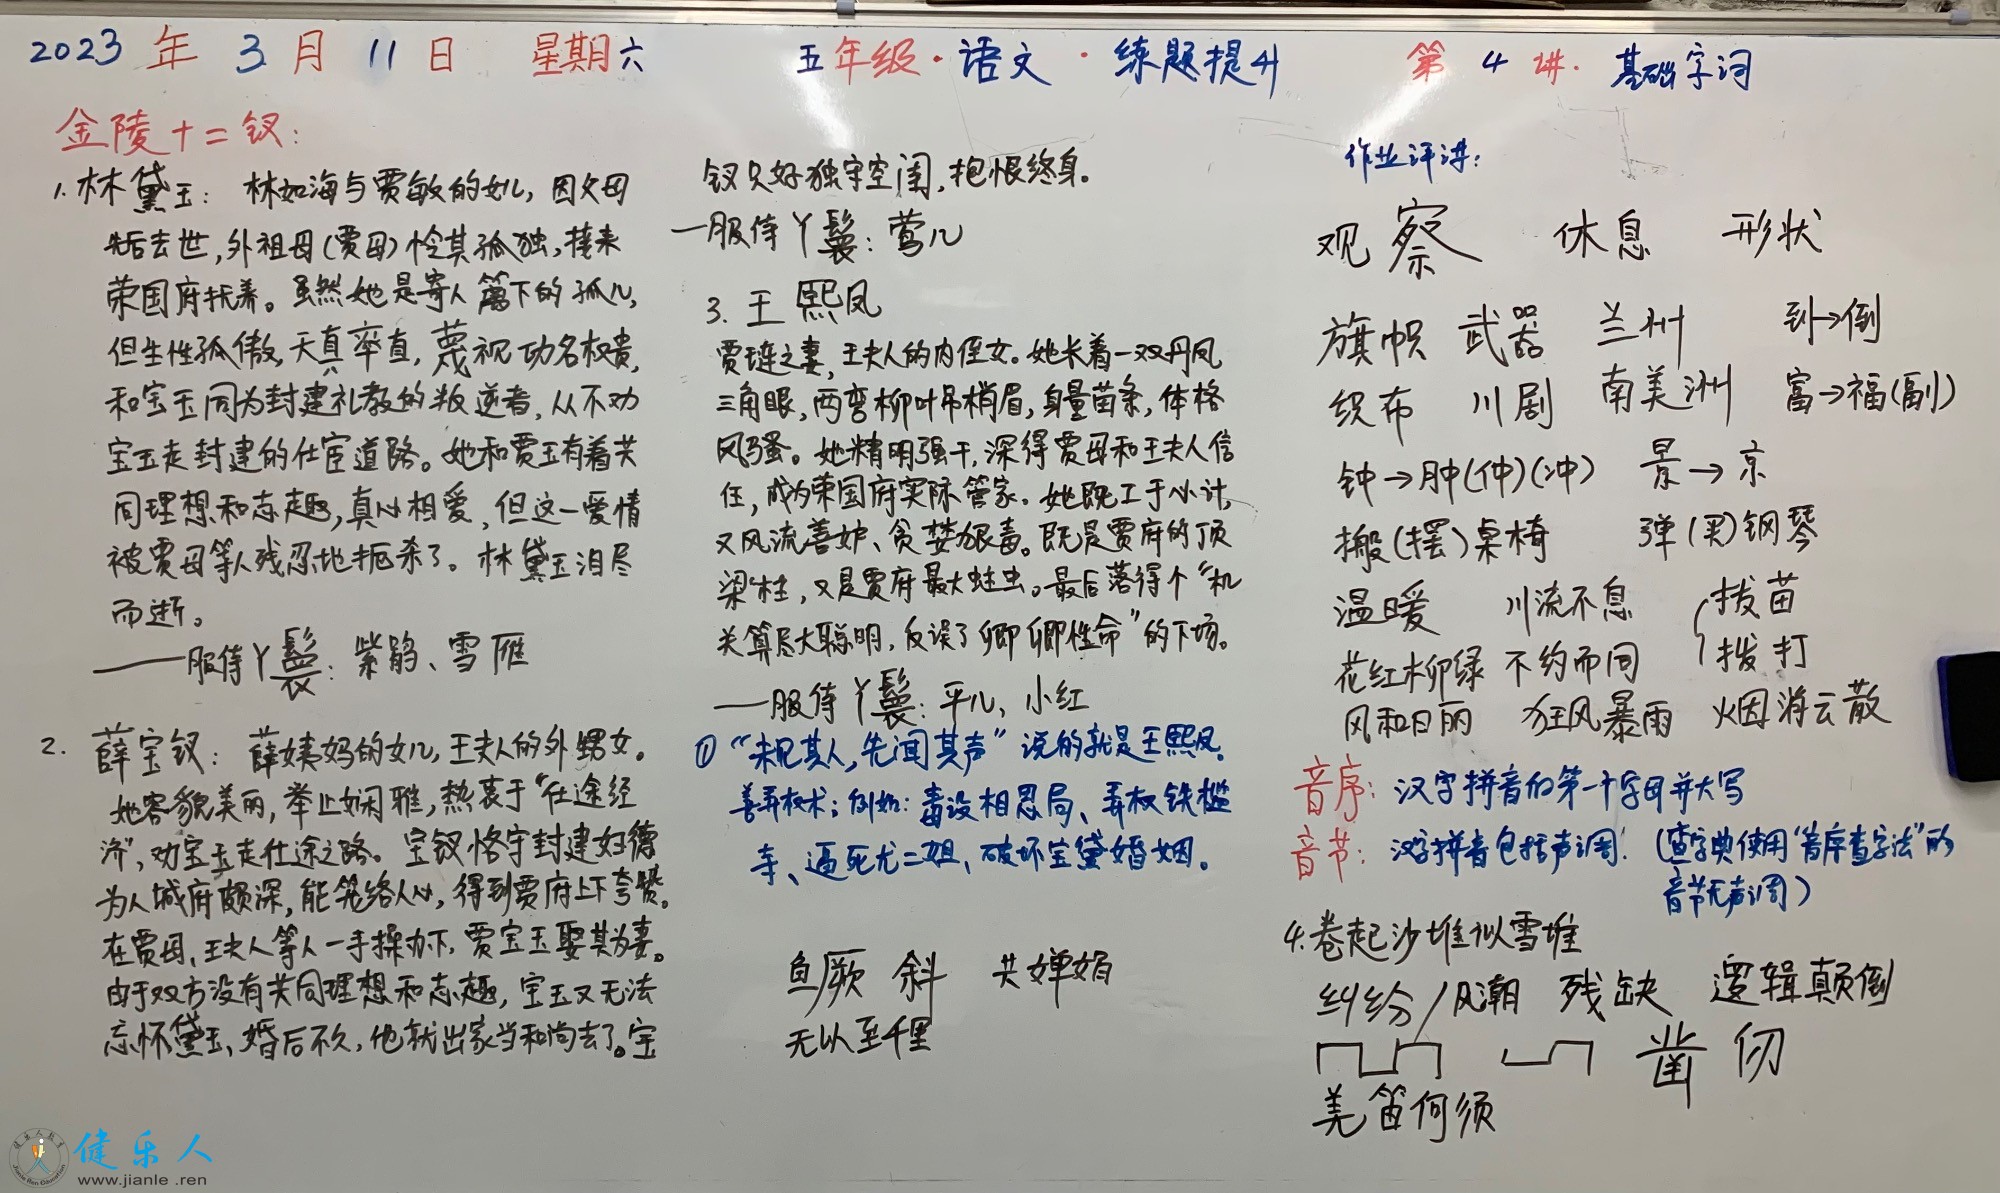 2023年3月11日 星期六 五年级·语文·练题提升 第4讲·基础字词
金陵十二钗:
1. 林黛玉: 林如海与贾敏的女儿, 因父母
先后去世, 外祖母(贾母)怜其孤独, 接来
荣国府抚养。虽然她是寄人篱下的孤儿,
但生性孤傲, 天真率直, 蔑视功名权贵,
和宝玉同为封建礼教的叛逆者, 从不劝
宝玉走封建的仕宦道路。她和贾玉有着共
同理想和志趣, 真心相爱, 但这一爱情
被贾母等人残忍地扼杀了。林黛玉泪尽
而逝。
——服侍丫鬟: 紫鹃、雪雁
2. 薛宝钗: 薛姨妈的女儿, 王夫人的外甥女。
她容貌美丽, 举止娴雅, 热衷于“仕途经
济”, 劝宝玉走仕途之路。宝钗恪守封建妇德
为人城府颇深, 能笼络人心, 得到贾府上下夸赞。
在贾母、王夫人等人一手操办下, 贾宝玉娶其为妻。
由于双方没有共同理想和志趣, 宝玉又无法
忘怀黛玉、婚后不久, 他就出家当和尚去了。宝
钗只好独守空闺, 抱恨终身。
—服侍丫鬟: 莺儿
3. 王熙凤
贾琏之妻, 王夫人的内侄女。她长着一双丹凤
三角眼, 两弯柳叶吊梢眉, 身量苗条, 体格
风骚。她精明强干, 深得贾母和王夫人信
任, 成为荣国府实际管家。她既工于心计,
又风流善妒、贪婪狠毒。既是贾府的顶
梁柱, 又是贾府最大蛀虫。最后落得个“机
关算尽太聪明, 反误了卿卿性命”的下场。
—服侍丫鬟: 平儿、小红
① “未见其人, 先闻其声”说的就是王熙凤.
善弄权术; 例如: 毒设相思局、弄权铁槛
寺、逼死尤二姐、破坏宝黛婚姻。
鱼厥 斜 共婵娟
无以至千里
作业评讲:
观察 休息 形状
旗帜 武器 兰州 到→倒
织布 川剧 南美洲 富→福(副)
钟→肿(仲)(冲) 景→京
搬(摆)桌椅 弹(奏)钢琴
温暖 川流不息 拔苗
花红柳绿 不约而同 拨打
风和日丽 狂风暴雨 烟消云散
音序: 汉字拼音的第一个字母并大写
音节: 汉字拼音包括声调! (查字典使用“音序查字法”的
音节无声调)
4. 卷起沙堆似雪堆
纠纷/风潮 残缺 逻辑颠倒
凿 仞
羌笛何须
健乐人
www.jianle.ren